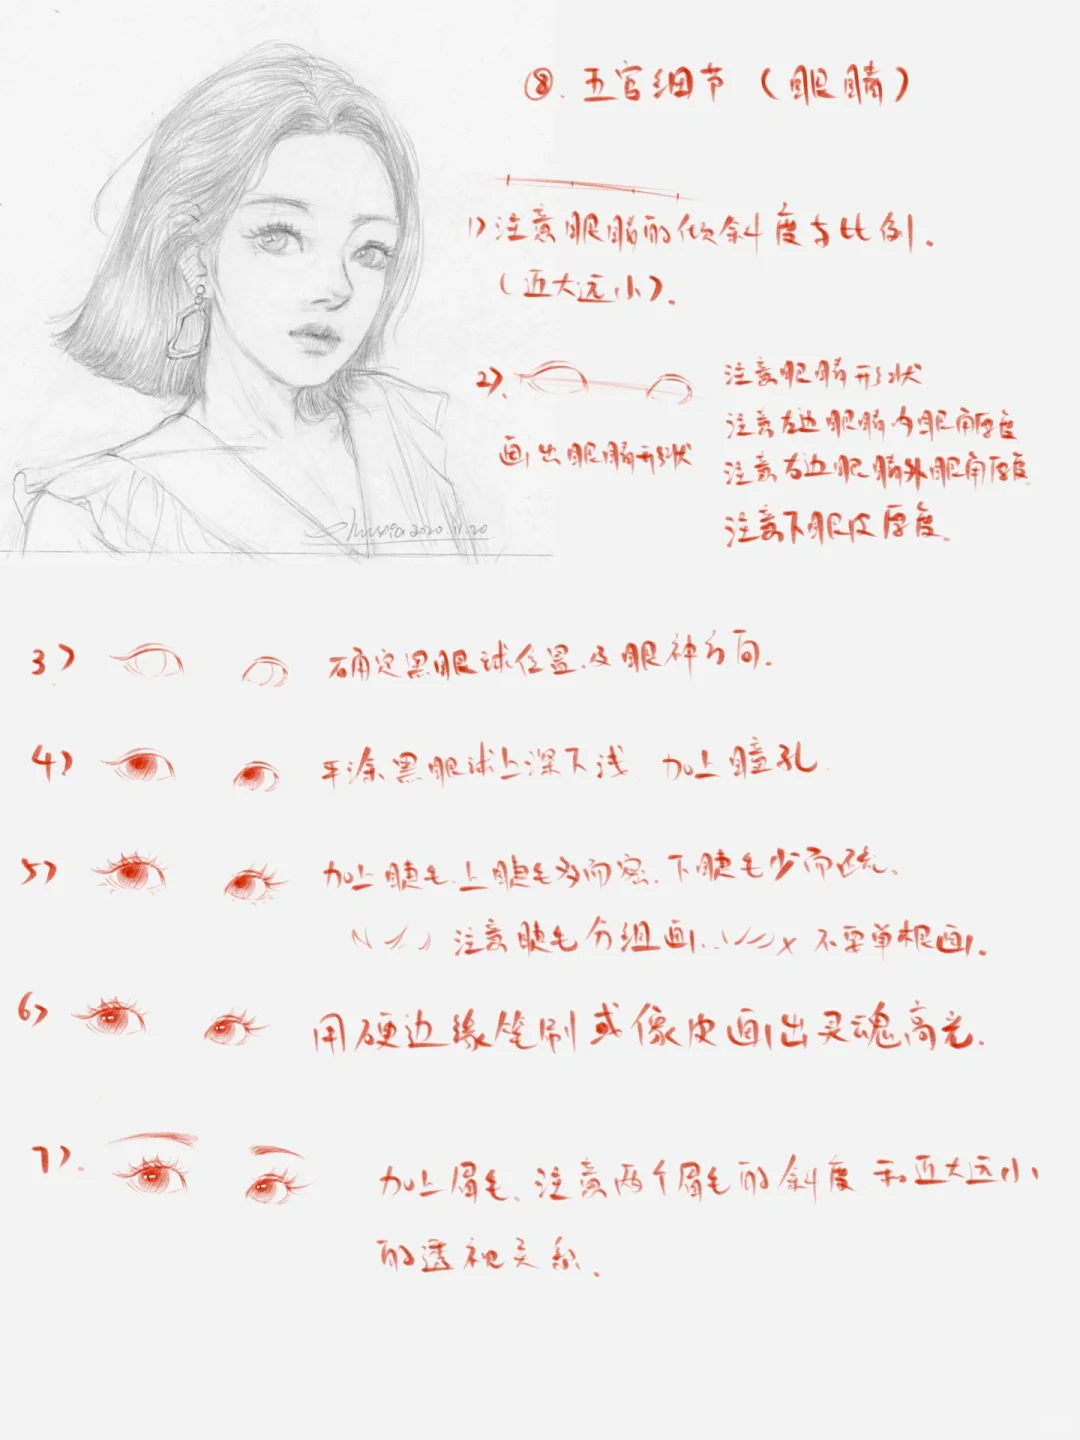 ⑧. 五官细节（眼睛）
1）注意眼睛的倾斜度与比例.
（近大远小）.
2）.
画出眼睛形状
注意眼睛形状
注意左边眼睛内眼角厚度
注意右边眼睛外眼角厚度
注意下眼皮厚度.
2020.11.20
3） 确定黑眼球位置.及眼神方向.
4） 平涂黑眼球上深下浅. 加上瞳孔.
5） 加上睫毛.上睫毛多而密.下睫毛少而疏.
注意睫毛分组画. x 不要单根画.
6） 用硬边缘笔刷或像皮画出灵魂高光.
7）. 加上眉毛.注意两个眉毛的斜度和近大远小
的透视关系.